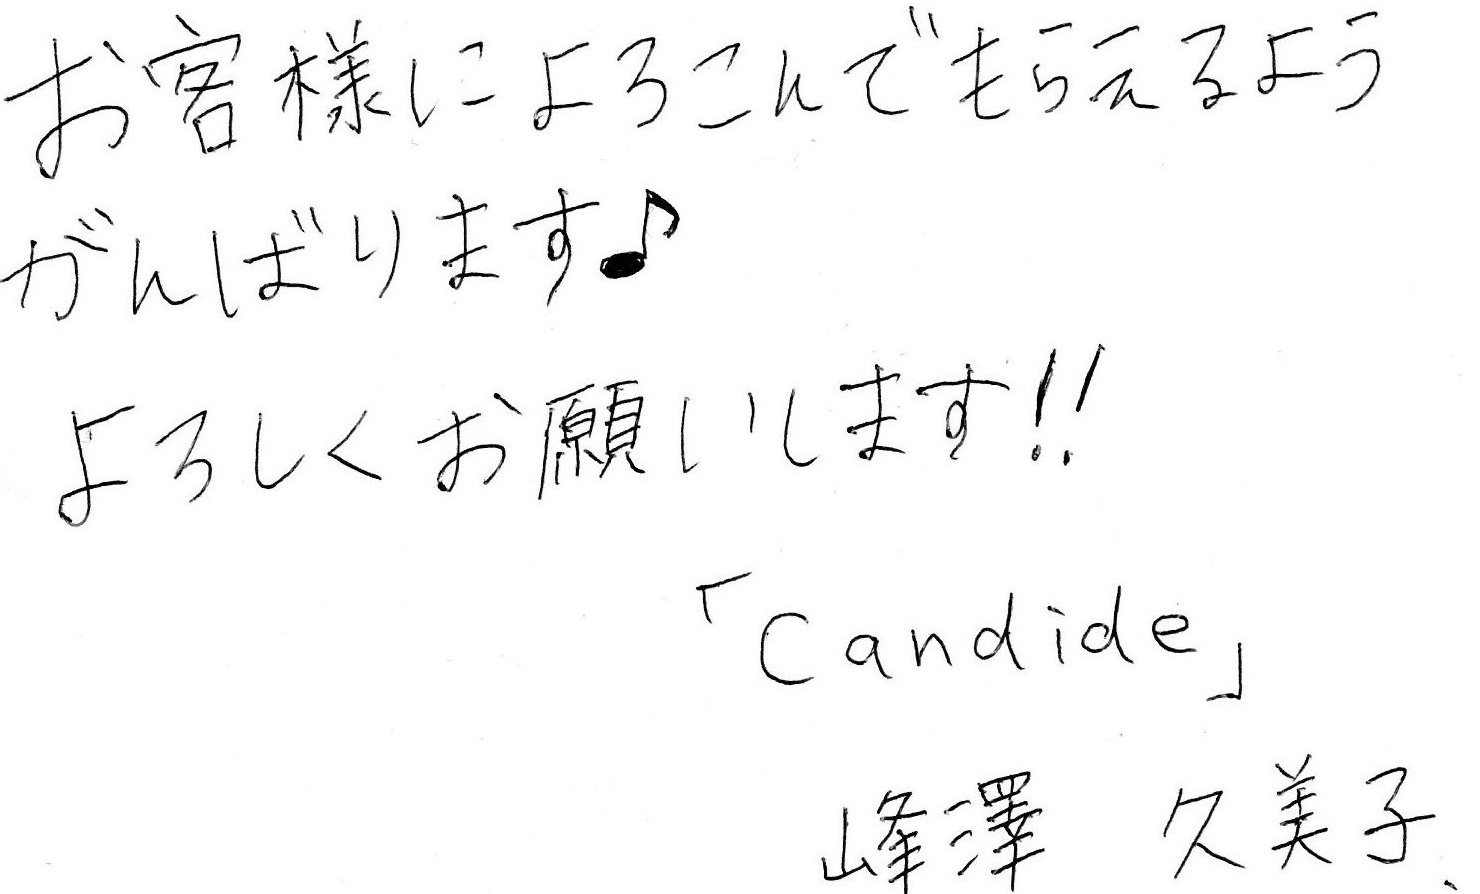 お客様によろこんでもらえるよう
がんばります♪
よろしくお願いします!!
「Candide」
峰澤 久美子